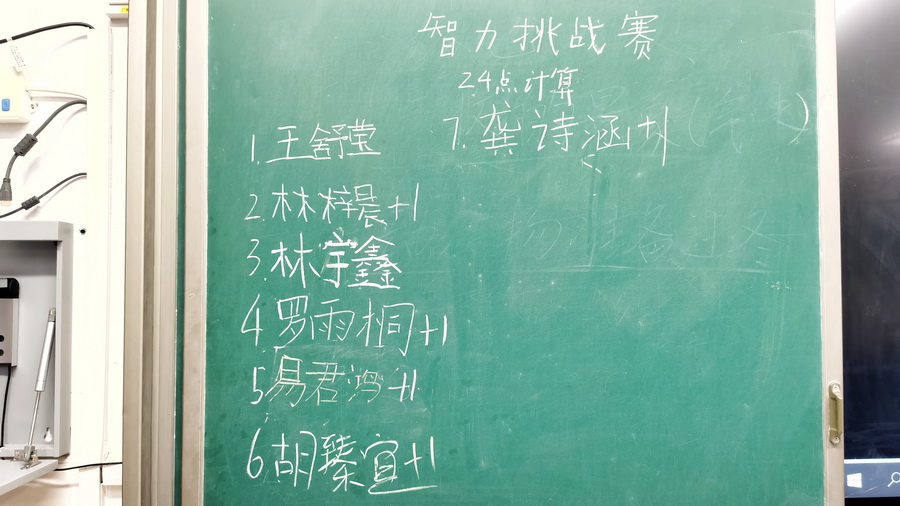 智力挑战赛
24点计算
1.王舒莹
2.林梓晨+1
3.林宇鑫
4罗雨桐+1
5易君鸿+1
6胡臻宜+1
7.龚诗涵+1